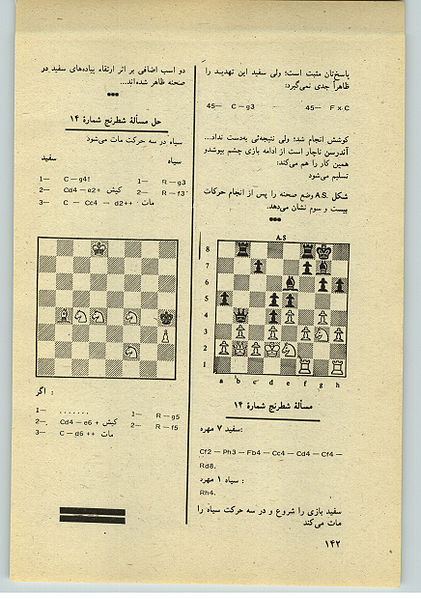 پاسختان مثبت است؛ ولی سفید این تهدید را
ظاهراً جدی نمی‌گیرد:
45— C – g3 45— F x C
کوشش انجام شد؛ ولی نتیجه‌ئی به‌دست نداد...
آندرسن ناچار است از ادامه بازی چشم بپوشدو
همین کار را هم می‌کند:
تسلیم می‌شود
شکل A.S وضع صحنه را پس از انجام حرکات
بیست و سوم نشان می‌دهد.
A.S
8
7
6
5
4
3
2
1
a b c d e f g h
مسألهٔ شطرنج شمارهٔ ۱۴
سفید ۷ مهره:
Cf2 — Ph3 — Fb4 — Cc4 — Cd4 — Cf4 —
Rd8.
سیاه ۱ مهره :
Rh4.
سفید بازی را شروع و در سه حرکت سیاه را
مات می‌کند
دو اسب اضافی بر اثر ارتقاء پیاده‌های سفید دو
صحنه ظاهر شده‌اند...
حل مسألهٔ شطرنج شمارهٔ ۱۴
سیاه در سه حرکت مات می‌شود
سفید سیاه
1— C – g4! 1— R – g3
2— Cd4 – e2+ کیش 2— R – f3
3— C — Cc4 – d2++ مات
اگر :
1— ....... 1— R – g5
2— Cd4 – e6 + کیش 2— R – f5
3— C – d6 ++ مات
۱۴۲